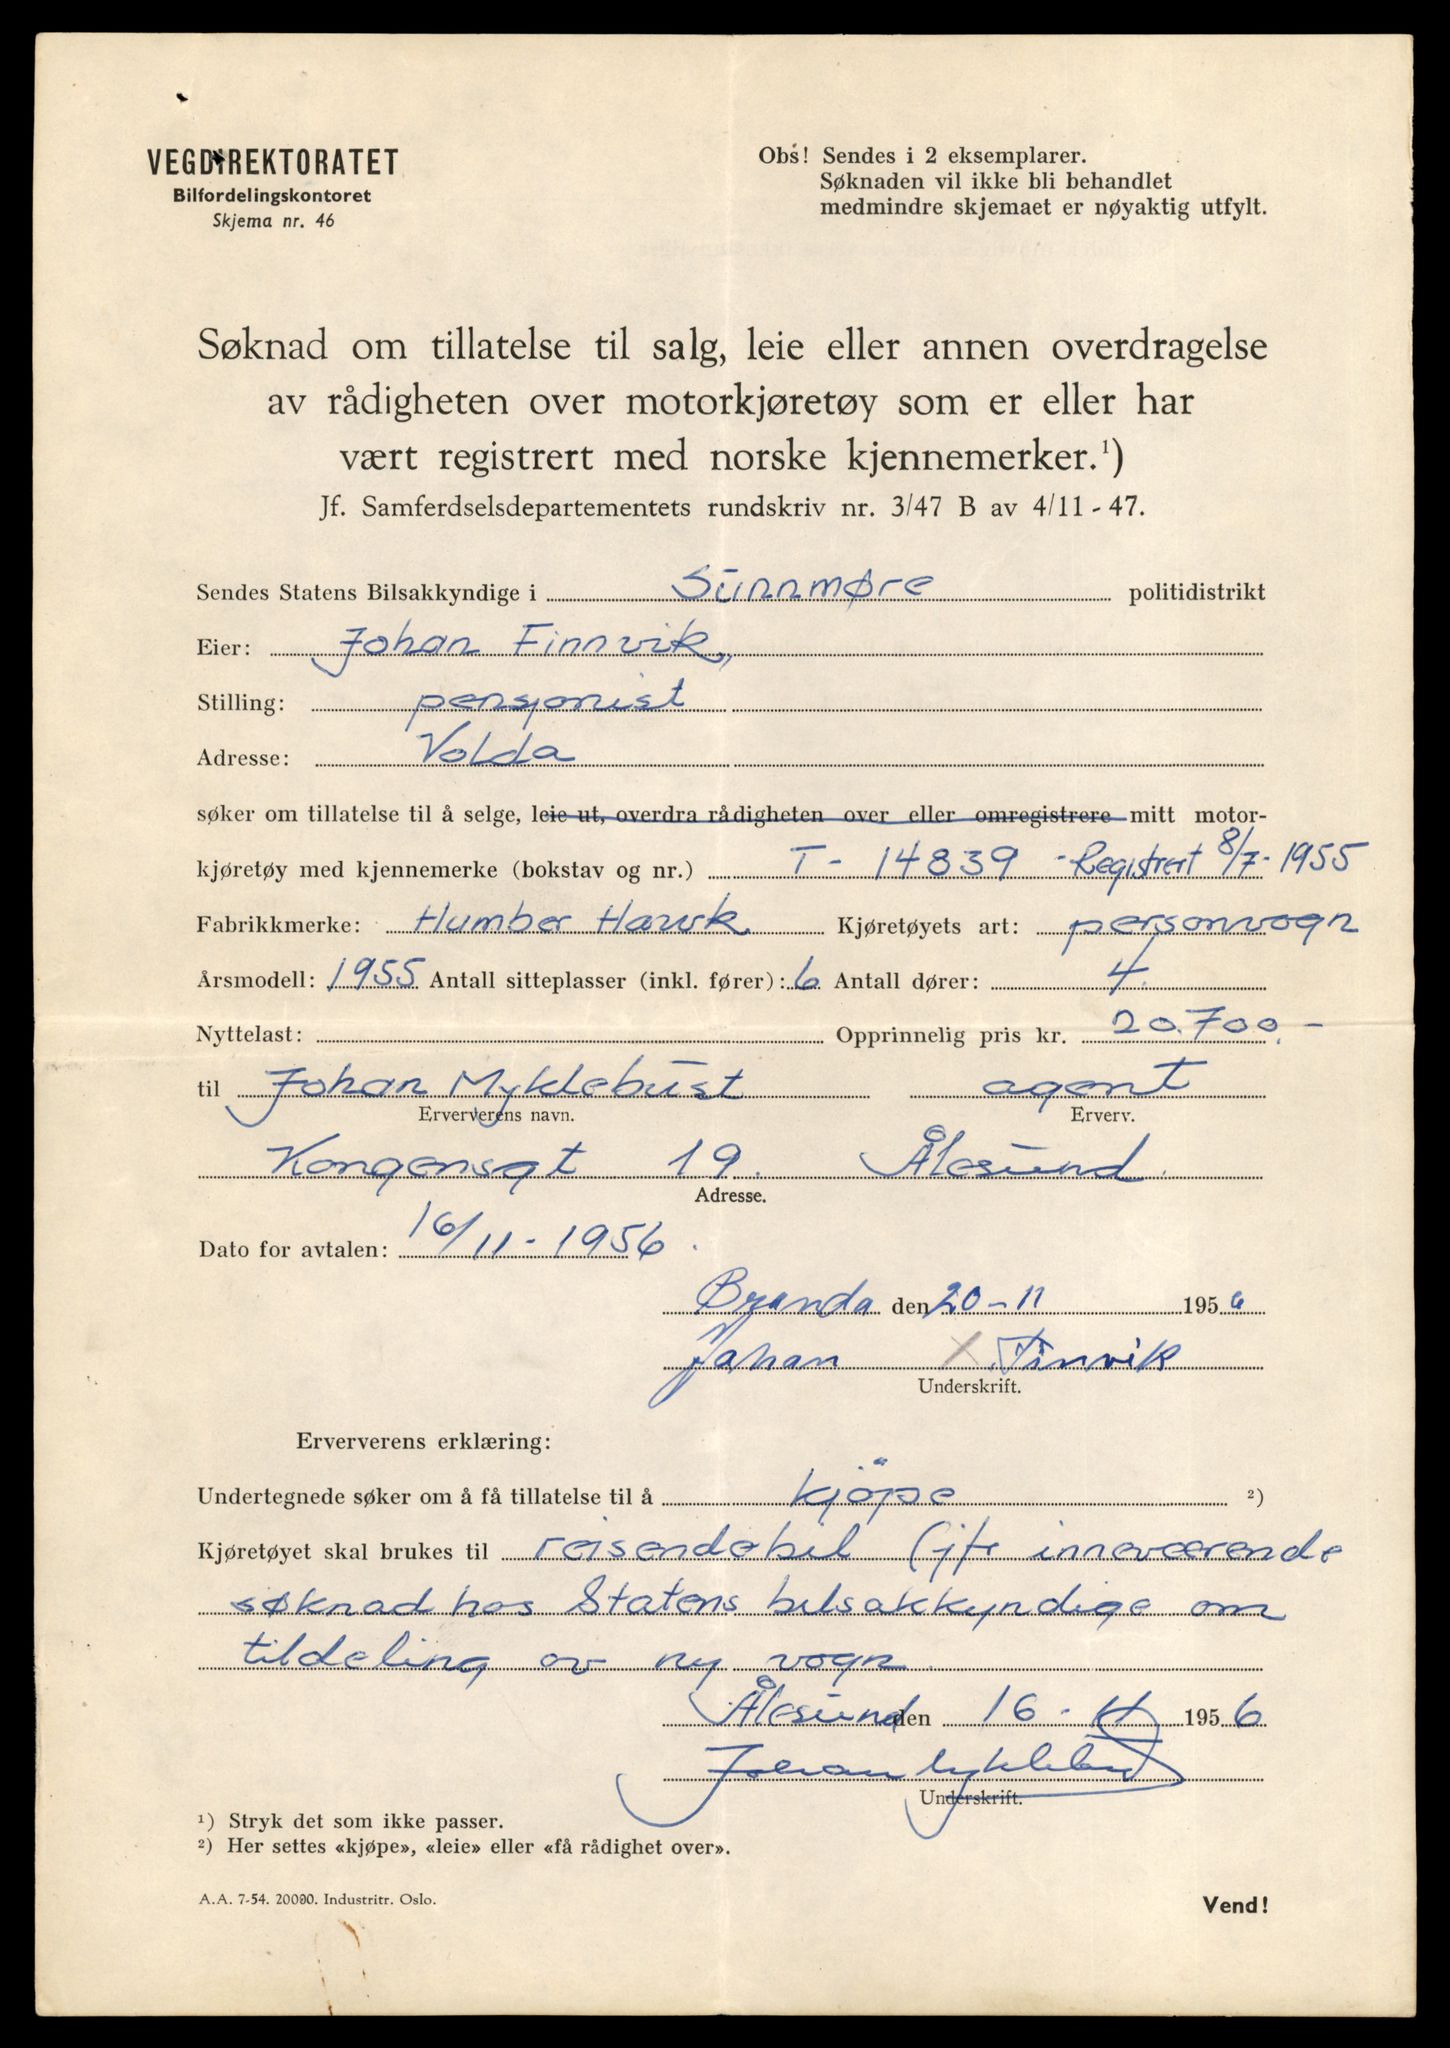 VEGDIREKTORATET
Bilfordelingskontoret
Skjema nr. 46
Obs! Sendes i 2 eksemplarer.
Søknaden vil ikke bli behandlet
medmindre skjemaet er nøyaktig utfylt.
Søknad om tillatelse til salg, leie eller annen overdragelse
av rådigheten over motorkjøretøy som er eller har
vært registrert med norske kjennemerker.¹)
Jf. Samferdselsdepartementets rundskriv nr. 3/47 B av 4/11 - 47.
Sendes Statens Bilsakkyndige i Sunnmøre politidistrikt
Eier: Johan Finnvik,
Stilling: pensjonist
Adresse: Volda
søker om tillatelse til å selge, leie ut, overdra rådigheten over eller omregistrere mitt motor-
kjøretøy med kjennemerke (bokstav og nr.) T - 14839 - Registrert 8/7 - 1955
Fabrikkmerke: Humber Hawk Kjøretøyets art: personvogn
Årsmodell: 1955 Antall sitteplasser (inkl. fører): 6 Antall dører: 4.
Nyttelast: Opprinnelig pris kr. 20.700.-
til Johan Myklebust agent
Erververens navn. Erverv.
Kongensgt 19. Ålesund.
Adresse.
Dato for avtalen: 16/11 - 1956.
den 20-11 1956
Johan X Finvik
Underskrift.
Erververens erklæring:
Undertegnede søker om å få tillatelse til å kjöpe ²)
Kjøretøyet skal brukes til reisendebil (jfr inneværende
søknad hos Statens bilsakkyndige om
tildeling av ny vogn
Ålesund den 16 - 11 1956
Johan Myklebust
Underskrift.
¹) Stryk det som ikke passer.
²) Her settes «kjøpe», «leie» eller «få rådighet over».
A.A. 7-54. 20000. Industritr. Oslo.
Vend!